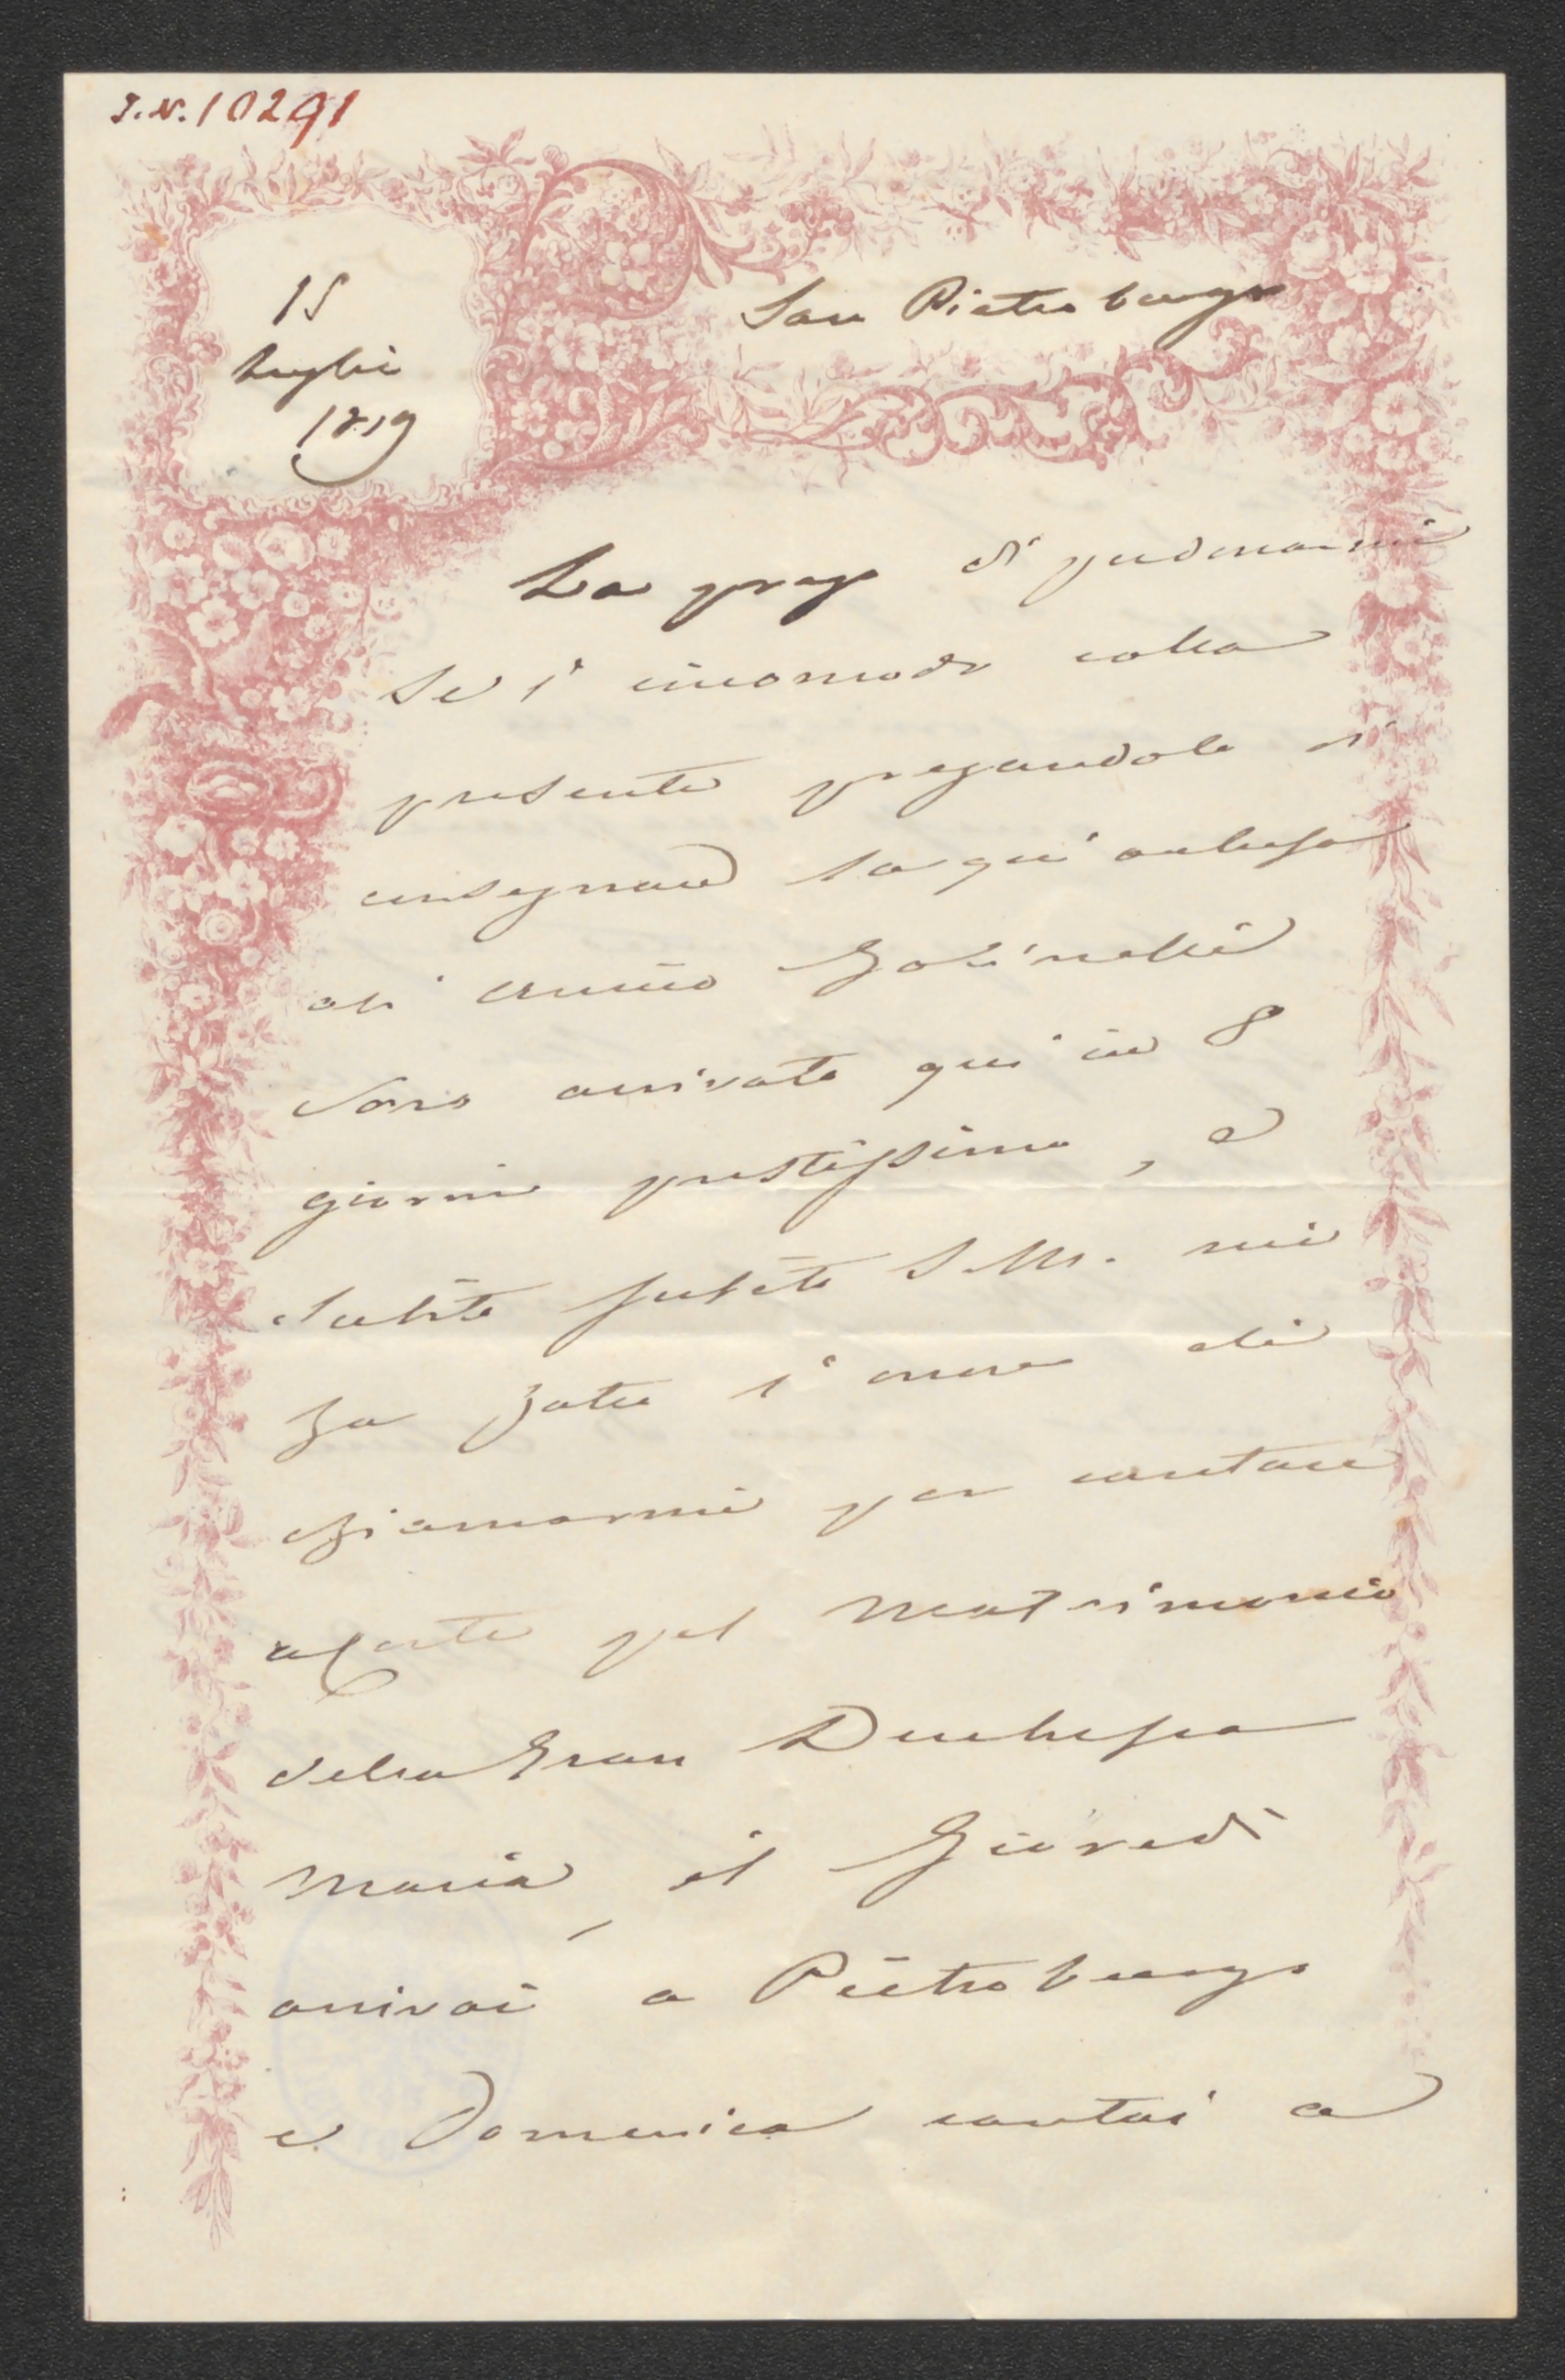 I.N. 10291
15
Luglio
1839
San Pietroburgo
La prego di perdonarmi
se l'incomodo colla
presente pregandola di
consegnare la qui anchesa
al Golinelli
Sono arrivata qui in 8
giorni prestissimo, e
subito subito S. M. mi
ha fatto l'onore di
chiamarmi per cantare
a Corte pel Matrimonio
della Gran Duchessa
Maria, il Giovedì
arrivai a Pietroburgo
e Domenica cantai a